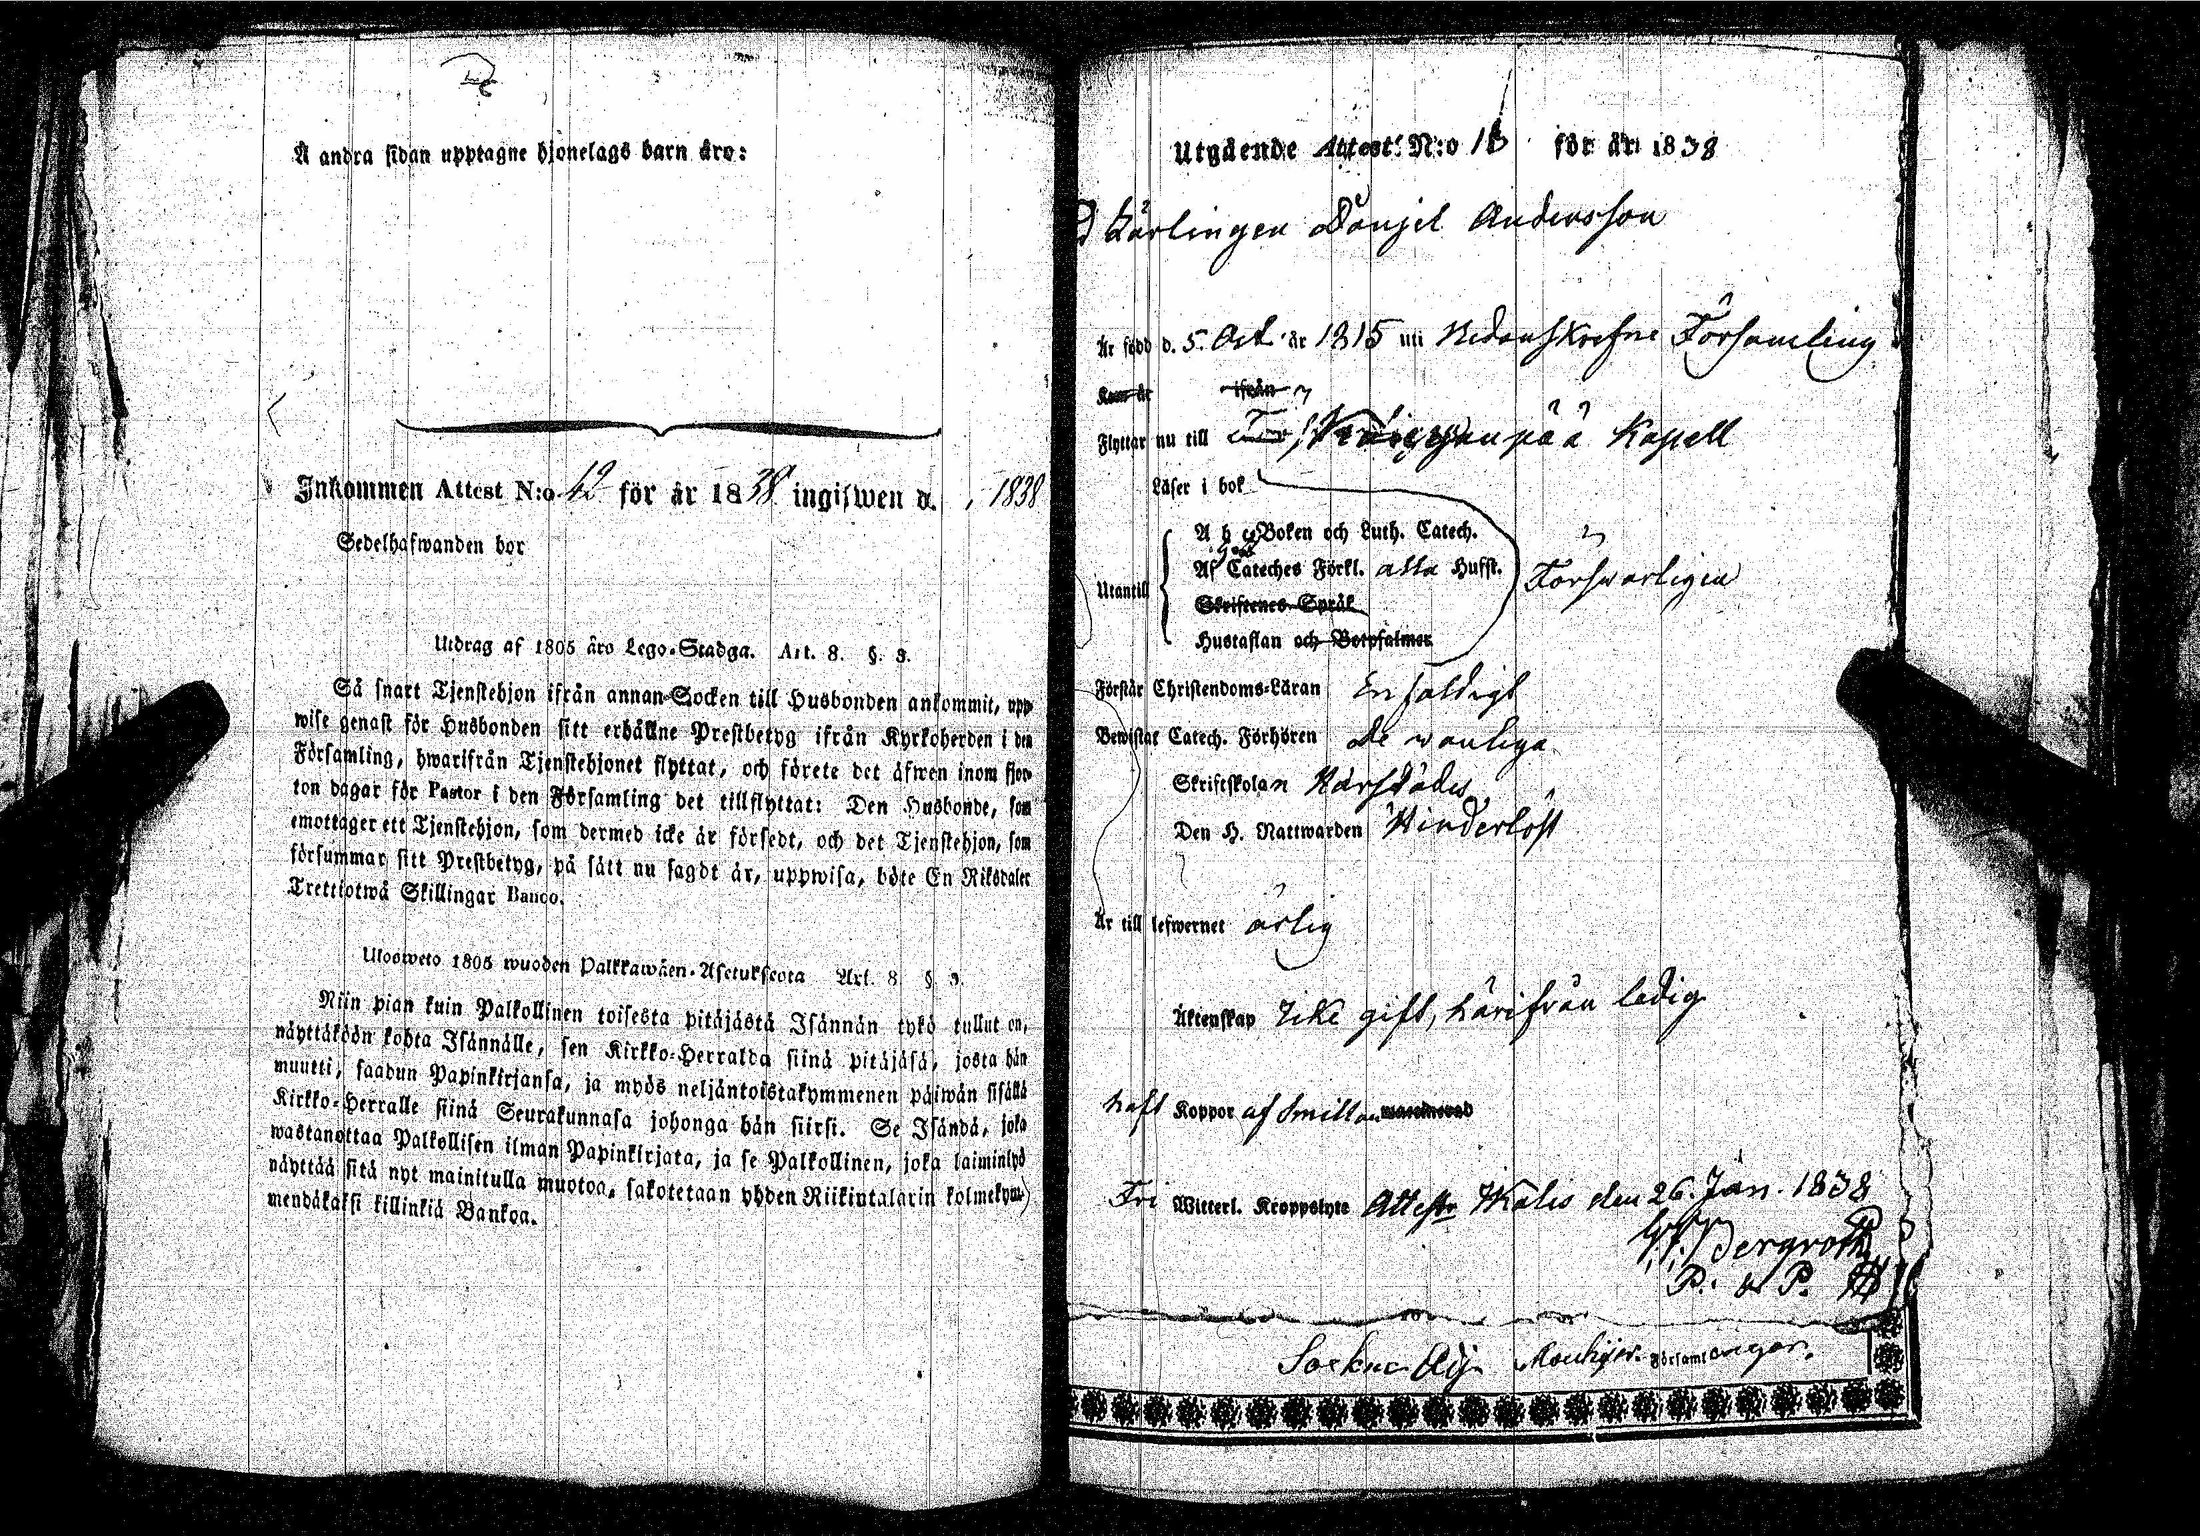 Å andra sidan upptagne hjonelags barn äro:
Inkommen Attest N:o 42 för år 1838 ingifwen d. , 1838
Sedelhafwanden bor
Utdrag af 1805 års Lego-Stadga. Art. 8. §. 3.
Så snart Tjenstehjon ifrån annan Socken till Husbonden ankommit, upp-
wise genast för Husbonden sitt erhållne Prestbetyg ifrån Kyrkoherden i den
Församling, hwarifrån Tjenstehjonet flyttat, och förete det äfwen inom fjor-
ton dagar för Pastor i den Församling det tillflyttat: Den Husbonde, som
emottager ett Tjenstehjon, som dermed icke är försedt, och det Tjenstehjon, som
försummar sitt Prestbetyg, på sätt nu sagdt är, uppwisa, böte En Riksdaler
Trettiotwå Skillingar Banco.
Ulosweto 1805 wuoden Palkkawäen-Asetuksesta Art. 8 § 3.
Niin pian kuin Palkollinen toisesta pitäjästä Isännän tykö tullut on,
näyttäköön kohta Isännälle, sen Kirkko-Herralda siinä pitäjäsä, josta hän
muutti, saadun Papinkirjansa, ja myös neljäntoistakymmenen päiwän sisällä
Kirkko-Herralle siinä Seurakunnasa johonga hän siirsi. Se Isändä, joka
wastanottaa Palkollisen ilman Papinkirjata, ja se Palkollinen, joka laiminlyö
näyttää sitä nyt mainitulla muotoa, sakotetaan yhden Riikintalarin kolmekym-
mendäkaksi killinkiä Bankoa.
Utgående Attest N:o 13 för år 1838
Kärlingen Danjel Andersson
Är född d. 5. Oct. år 1815 uti Nedanskrefne Församling
Kom år ifrån
Flyttar nu till Kapell
Läser i bok
A b c Boken och Luth. Catech.
Af Cateches Förkl. alla Husst.
Utantill Försvarligen
Skriftenes Språk
Hustaflan och Botpsalmer
Förstår Christendoms-Läran Enfaldigt
Bewistat Catech. Förhören de wanliga
Skriftskolan Härstädes
Den H. Nattwarden Hinderlöst
Är till lefwernet ärlig
Äktenskap Icke gift, härifrån ledig
haft Koppor af Smittan waccinerad
Fri Witterl. Kroppslyte Attest. Walis den 26. Jan. 1838
Bergroth
P.
Församlingar.